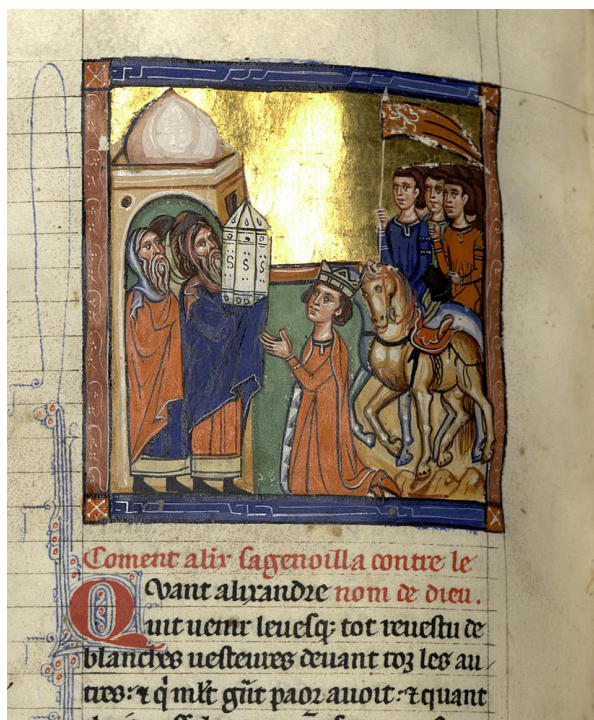 S S S
Coment alix sagenoilla contre le
Quant alixandre nom de dieu.
uit uenir leuesq; tot reuestu de
blanches uesteures deuant toz les au
tres: ⁊ q̇ mlt̄ gñt paor auoit: ⁊ quant